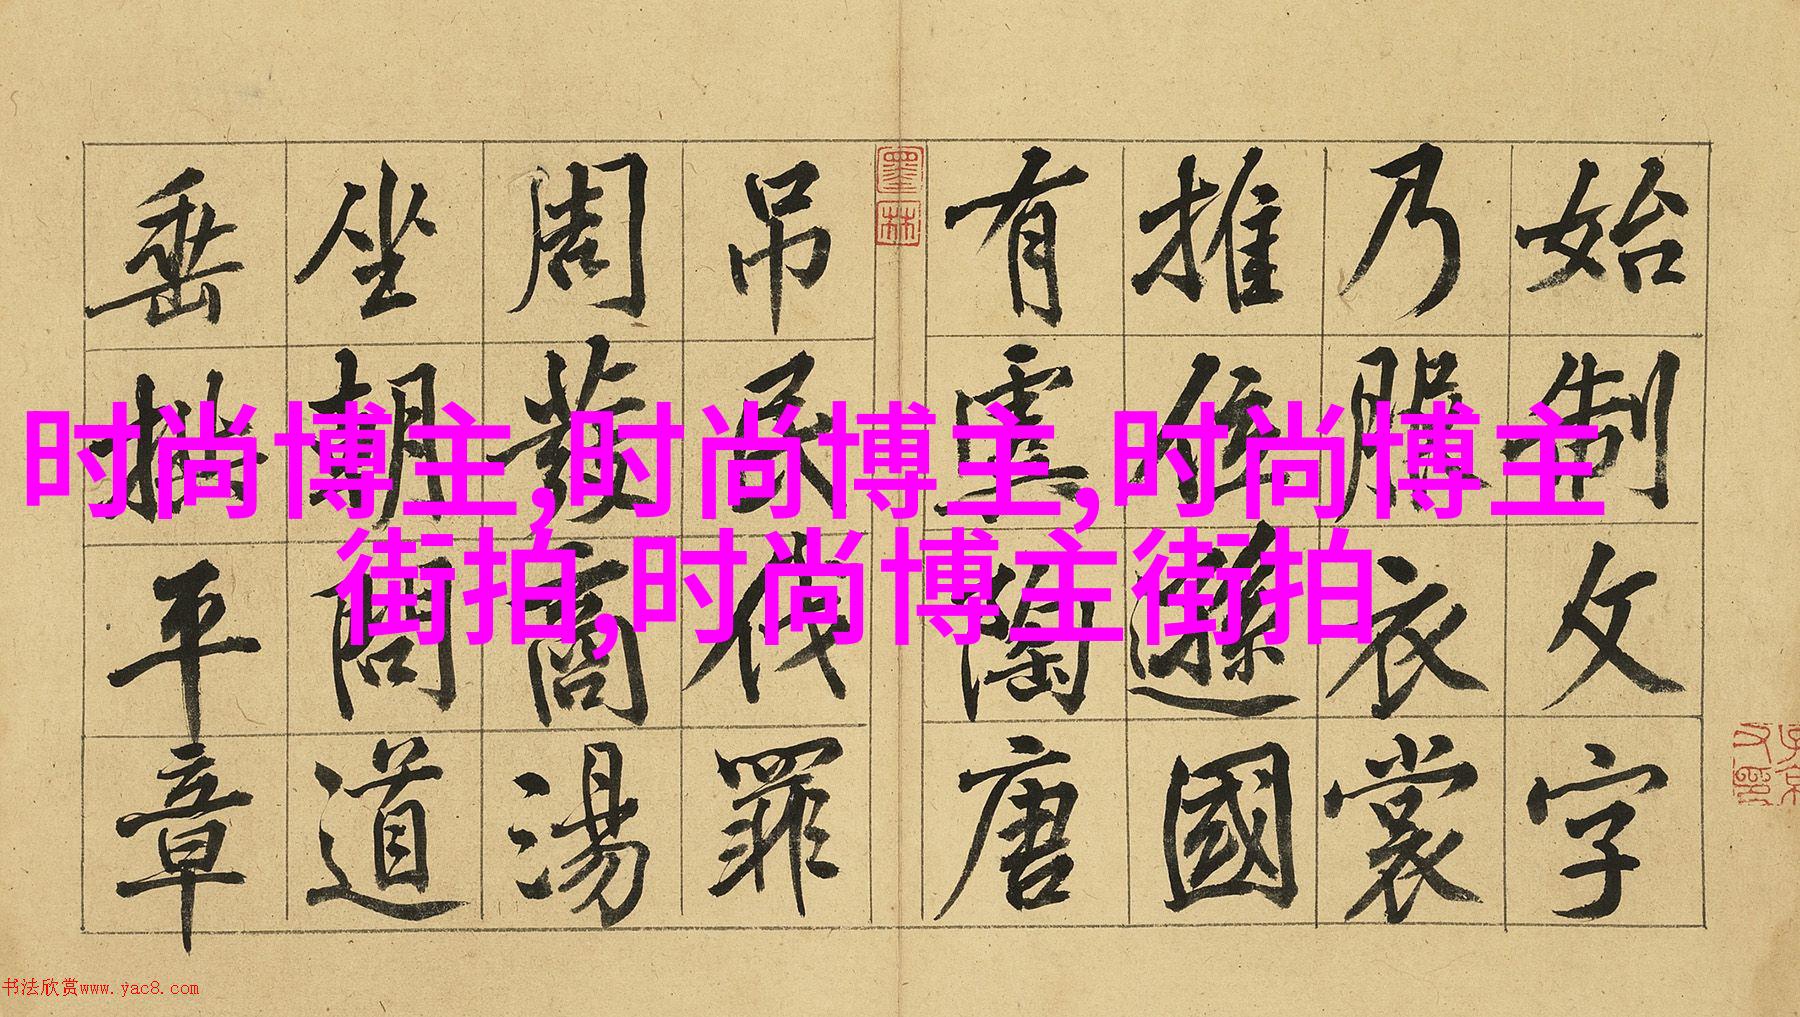 始制文字
乃服衣裳
推位遜國
有虞陶唐
吊民伐罪
周發商湯
坐朝問道
垂拱平章
墨林
时尚博主,时尚博主,时尚博主
街拍,时尚博主街拍
书法欣赏www.yac8.com